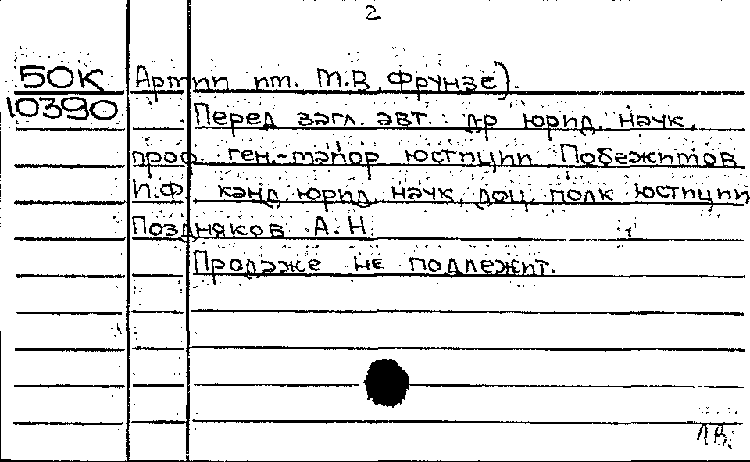 2
50К Артии им. М.В. Фрунзе).
10390 Перед загл. авт.: д-р юрид. наук,
проф. ген.-майор юстиции Побежимов
И.Ф., канд. юрид. наук, доц. полк. юстиции
Поздняков А.Н.
Продаже не подлежит.
Л.В.